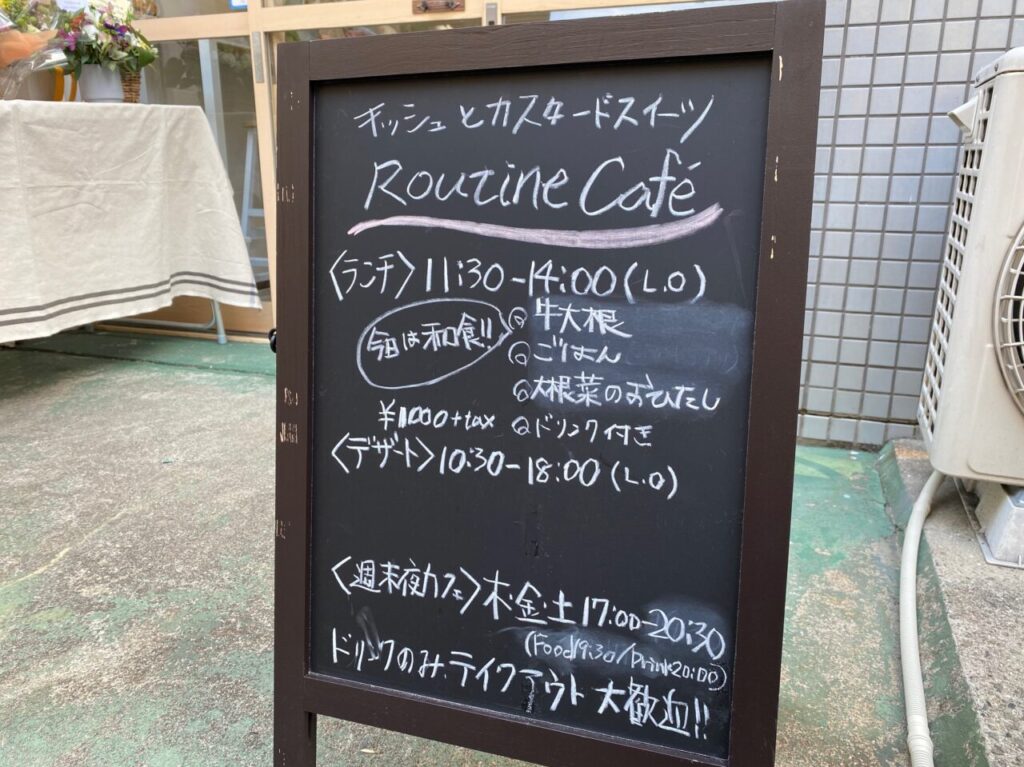 キッシュとカスタードスイーツ
Routine Café
〈ランチ〉11:30-14:00(L.O)
今日は和食!!
牛大根
ごはん
大根菜のおひたし
¥1000+tax
ドリンク付き
〈デザート〉10:30-18:00(L.O)
〈週末夜カフェ〉木・金・土17:00-20:30
(Food19:30/Drink20:00)
ドリンクのみ、テイクアウト大歓迎!!